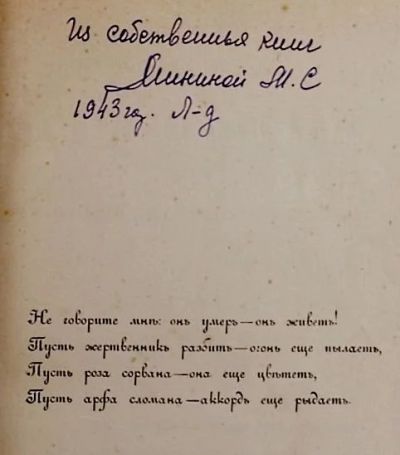 Из собственныя книг
Мининой М. С
1943 год. Л-д
Не говорите мнѣ: онъ умеръ—онъ живетъ!
Пусть жертвенникъ разбитъ—огонь еще пылаетъ,
Пусть роза сорвана—она еще цвѣтетъ,
Пусть арфа сломана—аккордъ еще рыдаетъ.